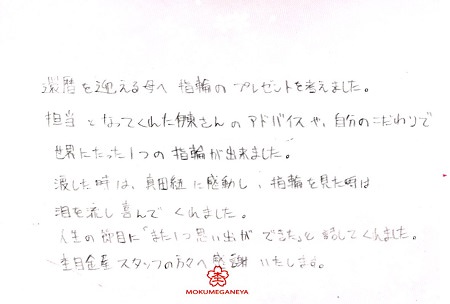 還暦を迎える母へ 指輪のプレゼントを考えました。
担当となってくれた伊東さんのアドバイスや、自分のこだわりで
世界にたった1つの指輪が出来ました。
渡した時は、真田紐に感動し、指輪を見た時は
泪を流し喜んでくれました。
人生の節目に「また1つ思い出ができた」と話してくれました。
杢目金屋スタッフの方々へ感謝いたします。
MOKUMEGANEYA